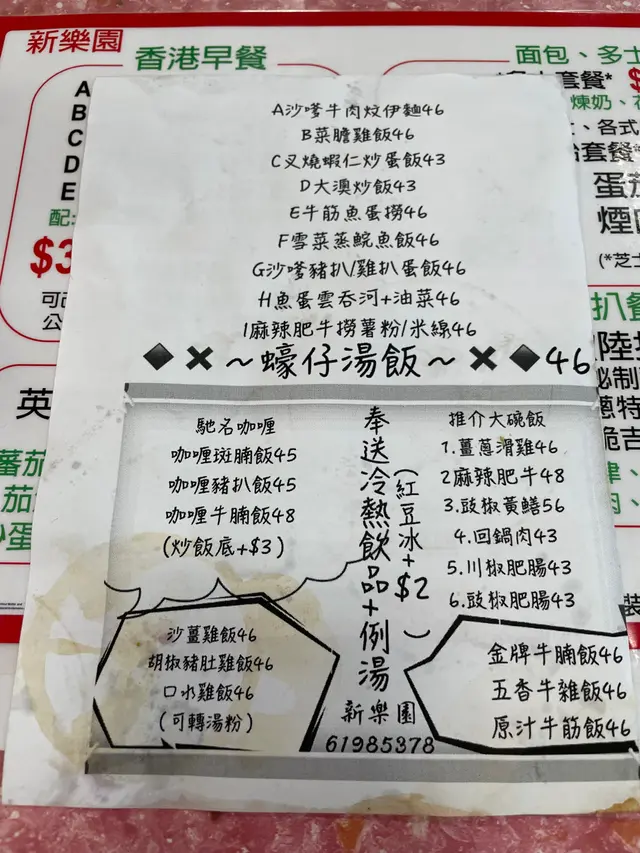 新樂園
香港早餐
A
B
C
D
E
配:
$3
可
公
英
面包、多士
套餐*
煉奶、
、各式
套餐
(*芝士
A沙嗲牛肉炆伊麵46
B菜膽雞飯46
C叉燒蝦仁炒蛋飯43
D大澳炒飯43
E牛筋魚蛋撈46
F雪菜蒸鯇魚飯46
G沙嗲豬扒/雞扒蛋飯46
H魚蛋雲吞河+油菜46
I麻辣肥牛撈薯粉/米線46
~蠔仔湯飯~ 46
馳名咖喱
咖喱斑腩飯45
咖喱豬扒飯45
咖喱牛腩飯48
(炒飯底+$3)
奉送冷熱飲品+例湯
(紅豆冰+$2)
推介大碗飯
1.薑蔥滑雞46
2麻辣肥牛48
3.豉椒黃鱔56
4.回鍋肉43
5.川椒肥腸43
6.豉椒肥腸43
沙薑雞飯46
胡椒豬肚雞飯46
口水雞飯46
(可轉湯粉)
新樂園
61985378
金牌牛腩飯46
五香牛雜飯46
原汁牛筋飯46